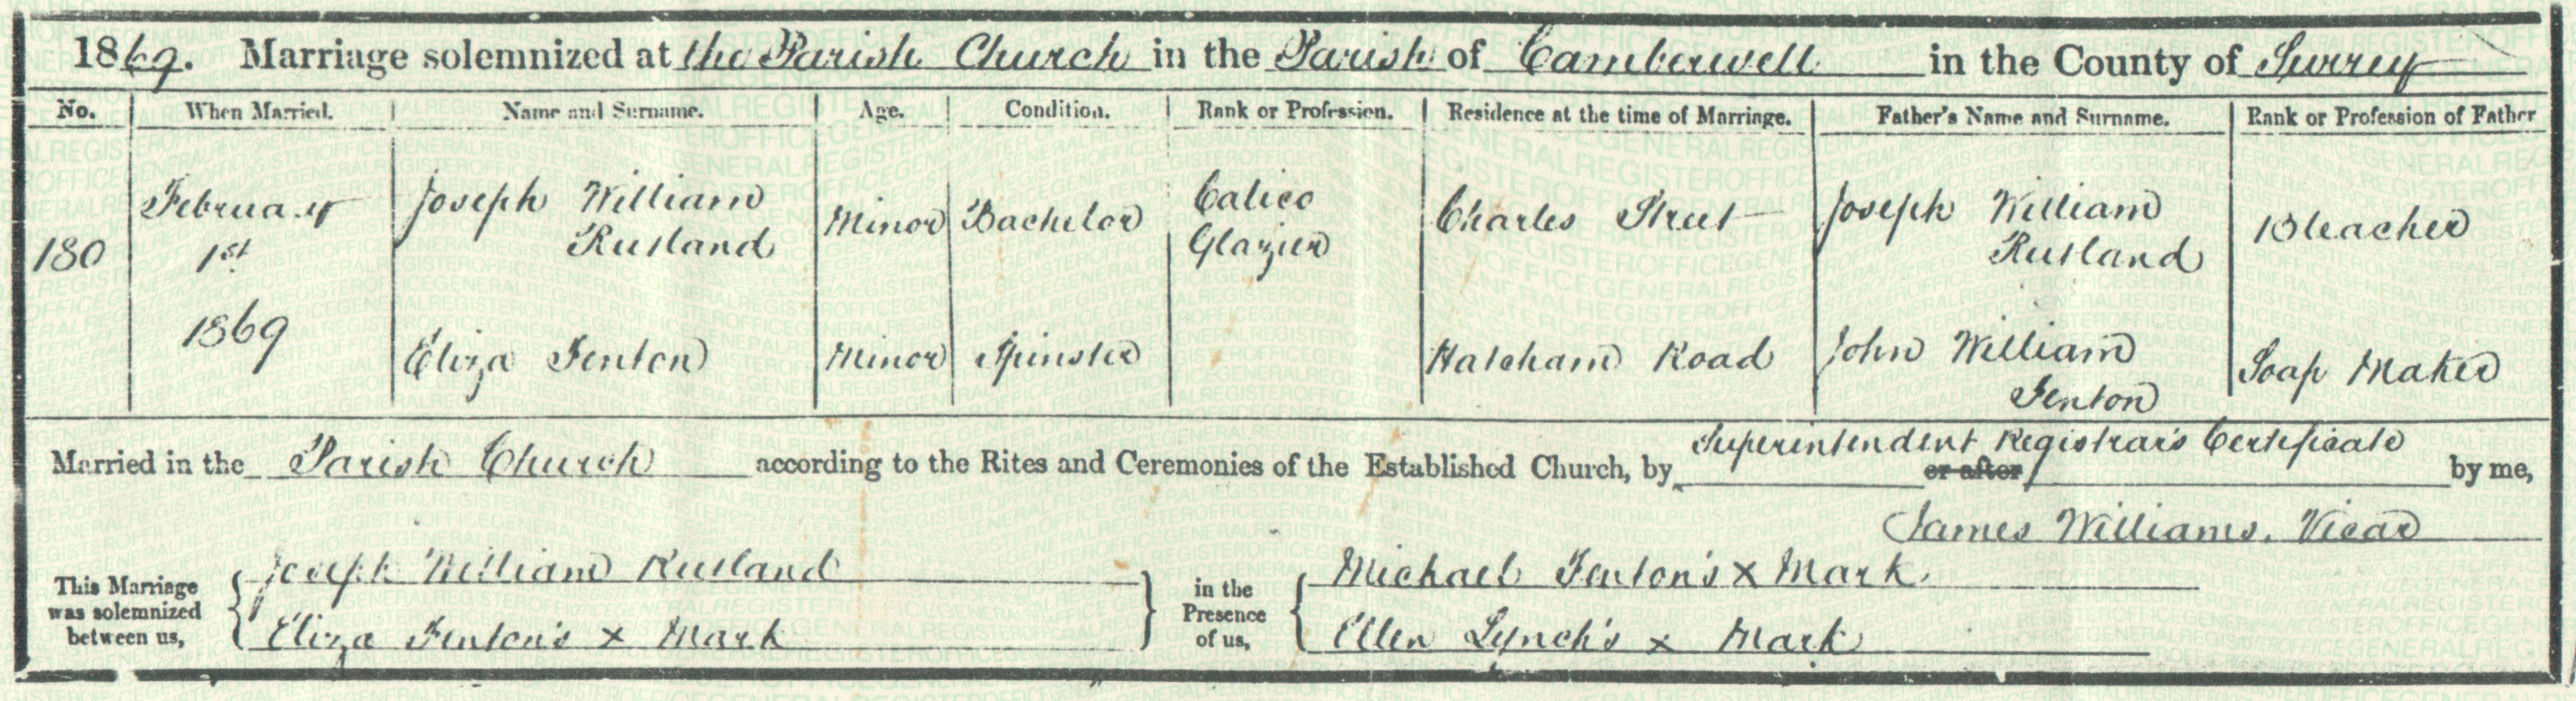 1869. Marriage solemnized at the Parish Church in the Parish of Camberwell in the County of Surrey
No. When Married. Name and Surname. Age. Condition. Rank or Profession. Residence at the time of Marriage. Father's Name and Surname. Rank or Profession of Father
180 February 1st 1869
Joseph William Rutland Minor Bachelor Calico Glazier Charles Street Joseph William Rutland Bleacher
Eliza Fenton Minor Spinster Hatcham Road John William Fenton Soap Maker
Superintendent Registrar's Certificate
Married in the Parish Church according to the Rites and Ceremonies of the Established Church, by or after by me,
James Williams, Vicar
This Marriage was solemnized between us, Joseph William Rutland
Eliza Fenton's x Mark
in the Presence of us, Michael Fenton's x Mark
Ellen Lynch's x Mark
GENERALREGISTEROFFICE